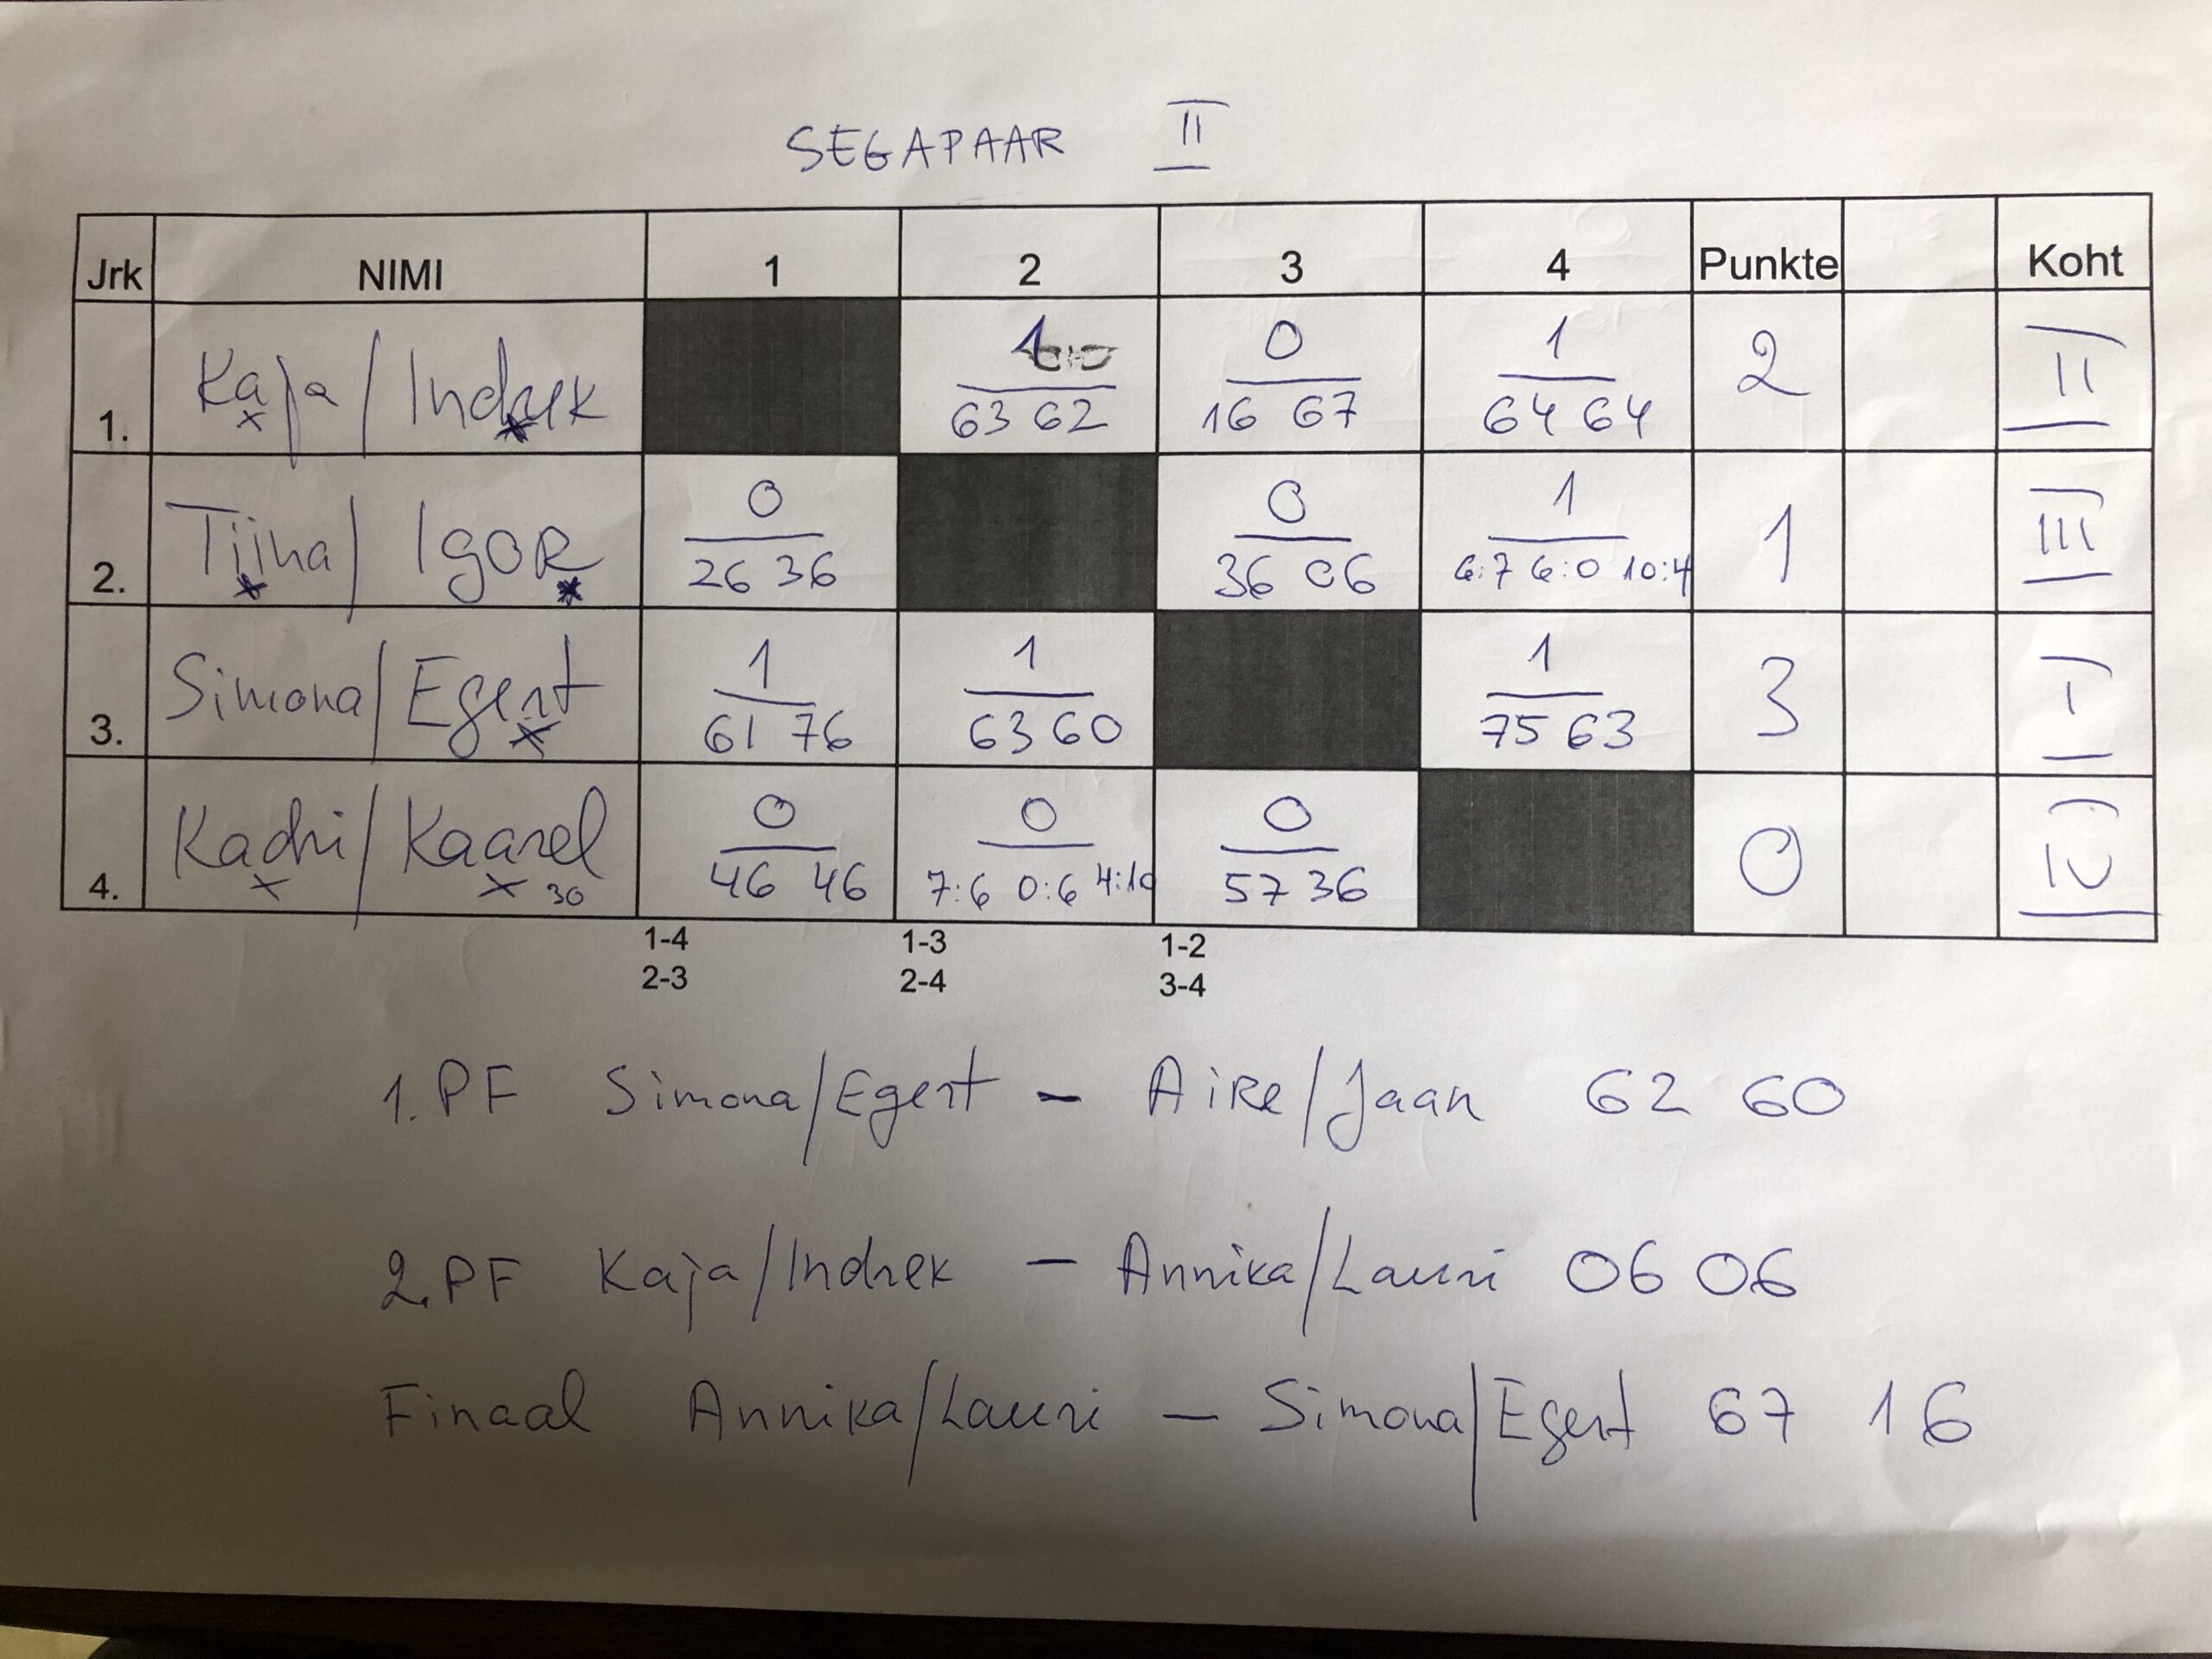 SEGAPAAR II
Jrk NIMI 1 2 3 4 Punkte Koht
1. Kaja/Indrek 1 63 62 0 16 67 1 64 64 2 II
2. Tiina/Igor 0 26 36 0 36 06 1 6:7 6:0 10:4 1 III
3. Simona/Egert 1 61 76 1 63 60 1 75 63 3 I
4. Kadri/Kaarel 30 0 46 46 0 7:6 0:6 4:10 0 57 36 0 IV
1-4 1-3 1-2
2-3 2-4 3-4
1. PF Simona/Egert - Aire/Jaan 62 60
2. PF Kaja/Indrek - Annika/Lauri 06 06
Finaal Annika/Lauri - Simona/Egert 67 16